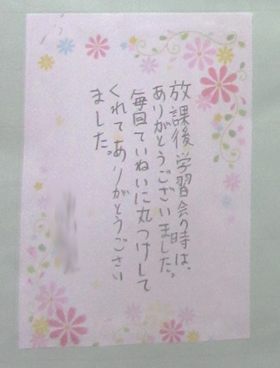 放課後学習会の時は、
ありがとうございました。
毎回ていねいに丸つけして
くれてありがとうござい
ました。